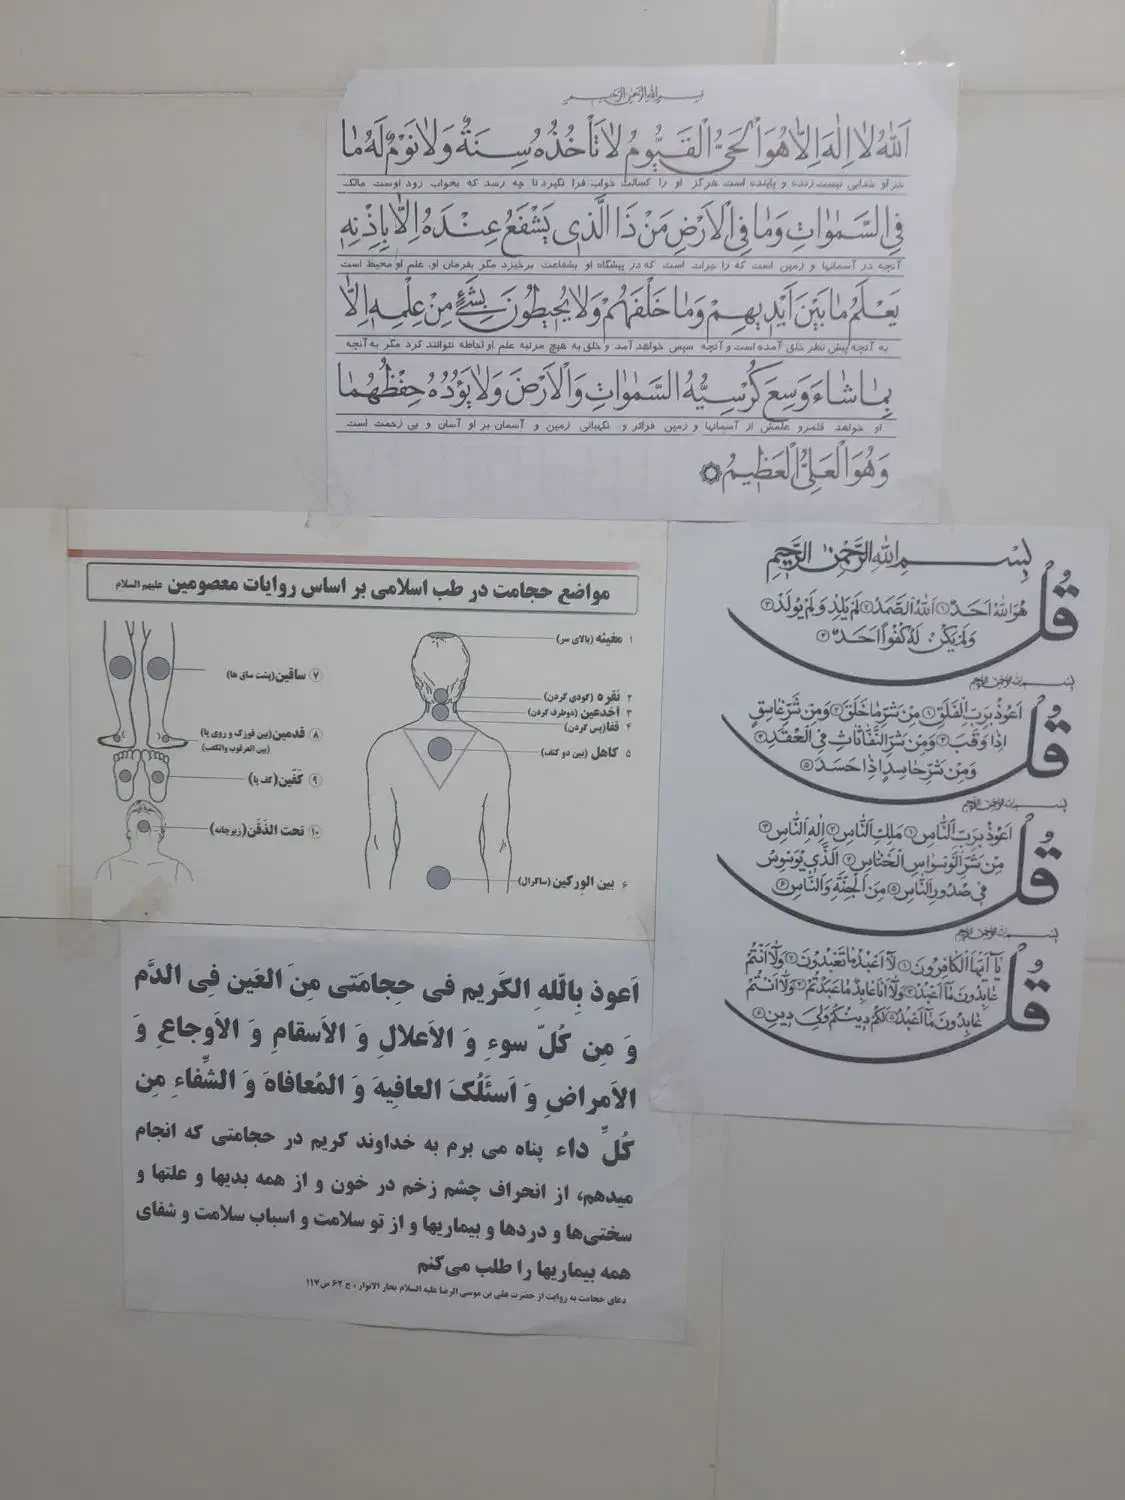 بسم الله الرحمن الرحیم
اَللّٰهُ لا اِلٰهَ اِلّا هُوَ الْحَیُّ الْقَیُّومُ لا تَأْخُذُهُ سِنَةٌ وَ لا نَوْمٌ لَهُ ما
جز او خدایی نیست زنده و پاینده است هرگز او را کسالت خواب فرا نگیرد تا چه رسد که بخواب رود اوست مالک
فِی السَّمٰواتِ وَ ما فِی الْاَرْضِ مَنْ ذَا الَّذی یَشْفَعُ عِنْدَهُ اِلّا بِاِذْنِهِ
آنچه در آسمانها و زمین است که را جرات است که در پیشگاه او بشفاعت برخیزد مگر بفرمان او. علم او محیط است
یَعْلَمُ ما بَیْنَ اَیْدیهِمْ وَ ما خَلْفَهُمْ وَ لا یُحیطُونَ بِشَیْءٍ مِنْ عِلْمِهِ اِلّا
به آنچه پیش نظر خلق آمده است و آنچه سپس خواهد آمد و خلق به هیچ مرتبه علم او احاطه نتوانند کرد مگر به آنچه
بِما شاءَ وَسِعَ کُرْسِیُّهُ السَّمٰواتِ وَ الْاَرْضَ وَ لا یَؤُدُهُ حِفْظُهُما
او خواهد قلمرو علمش از آسمانها و زمین فراتر و نگهبانی زمین و آسمان بر او آسان و بی زحمت است
وَ هُوَ الْعَلِیُّ الْعَظیمُ
مواضع حجامت در طب اسلامی بر اساس روایات معصومین علیهم السلام
۱ مغیثه (بالای سر)
۲ نقره (گودی گردن)
۳ اخدعین (دوطرف گردن)
۴ قفا (پس گردن)
۵ کاهل (بین دو کتف)
۶ بین الورکین (ساکرال)
۷ ساقین (پشت ساق ها)
۸ قدمین (بین قوزک و روی پا)
(بین العرقوب والکعب)
۹ کَفّین (کف پا)
۱۰ تحت الذَقَن (زیرچانه)
بِسْمِ اللهِ الرَّحْمٰنِ الرَّحِیمِ
قُل هُوَ اللهُ اَحَدٌ ۱ اَللهُ الصَّمَدُ ۲ لَمْ یَلِدْ وَ لَمْ یُولَدْ ۳
وَ لَمْ یَکُنْ لَهُ کُفُوًا اَحَدٌ ۴
بسم الله الرحمن الرحیم
قُل اَعُوذُ بِرَبِّ الْفَلَقِ ۱ مِنْ شَرِّ ما خَلَقَ ۲ وَ مِنْ شَرِّ غاسِقٍ
اِذا وَقَبَ ۳ وَ مِنْ شَرِّ النَّفّاثاتِ فِی الْعُقَدِ ۴
وَ مِنْ شَرِّ حاسِدٍ اِذا حَسَدَ ۵
بسم الله الرحمن الرحیم
قُل اَعُوذُ بِرَبِّ النّاسِ ۱ مَلِکِ النّاسِ ۲ اِلٰهِ النّاسِ ۳
مِنْ شَرِّ الْوَسْواسِ الْخَنّاسِ ۴ اَلَّذی یُوَسْوِسُ
فی صُدُورِ النّاسِ ۵ مِنَ الْجِنَّةِ وَ النّاسِ ۶
بسم الله الرحمن الرحیم
قُل یا اَیُّهَا الْکافِرُونَ ۱ لا اَعْبُدُ ما تَعْبُدُونَ ۲ وَ لا اَنْتُمْ
عابِدُونَ ما اَعْبُدُ ۳ وَ لا اَنا عابِدٌ ما عَبَدْتُمْ ۴ وَ لا اَنْتُمْ
عابِدُونَ ما اَعْبُدُ ۵ لَکُمْ دینُکُمْ وَلِیَ دینِ ۶
اَعوذ بِاللّهِ الکَریم فی حِجامَتی مِنَ العَین فِی الدَّم
وَ مِن کُلّ سوءِ وَ الاَعلالِ وَ الاَسقام وَ الاَوجاعِ وَ
الاَمراضِ وَ اَسئَلُکَ العافِیهَ وَ المُعافاهَ وَ الشِّفاء مِن
کُلِّ داء پناه می برم به خداوند کریم در حجامتی که انجام
میدهم، از انحراف چشم زخم در خون و از همه بدیها و علتها و
سختی‌ها و دردها و بیماریها و از تو سلامت و اسباب سلامت و شفای
همه بیماریها را طلب می‌کنم
دعای حجامت به روایت از حضرت علی بن موسی الرضا علیه السلام بحار الانوار ، ج ۶۲ ص۱۱۷